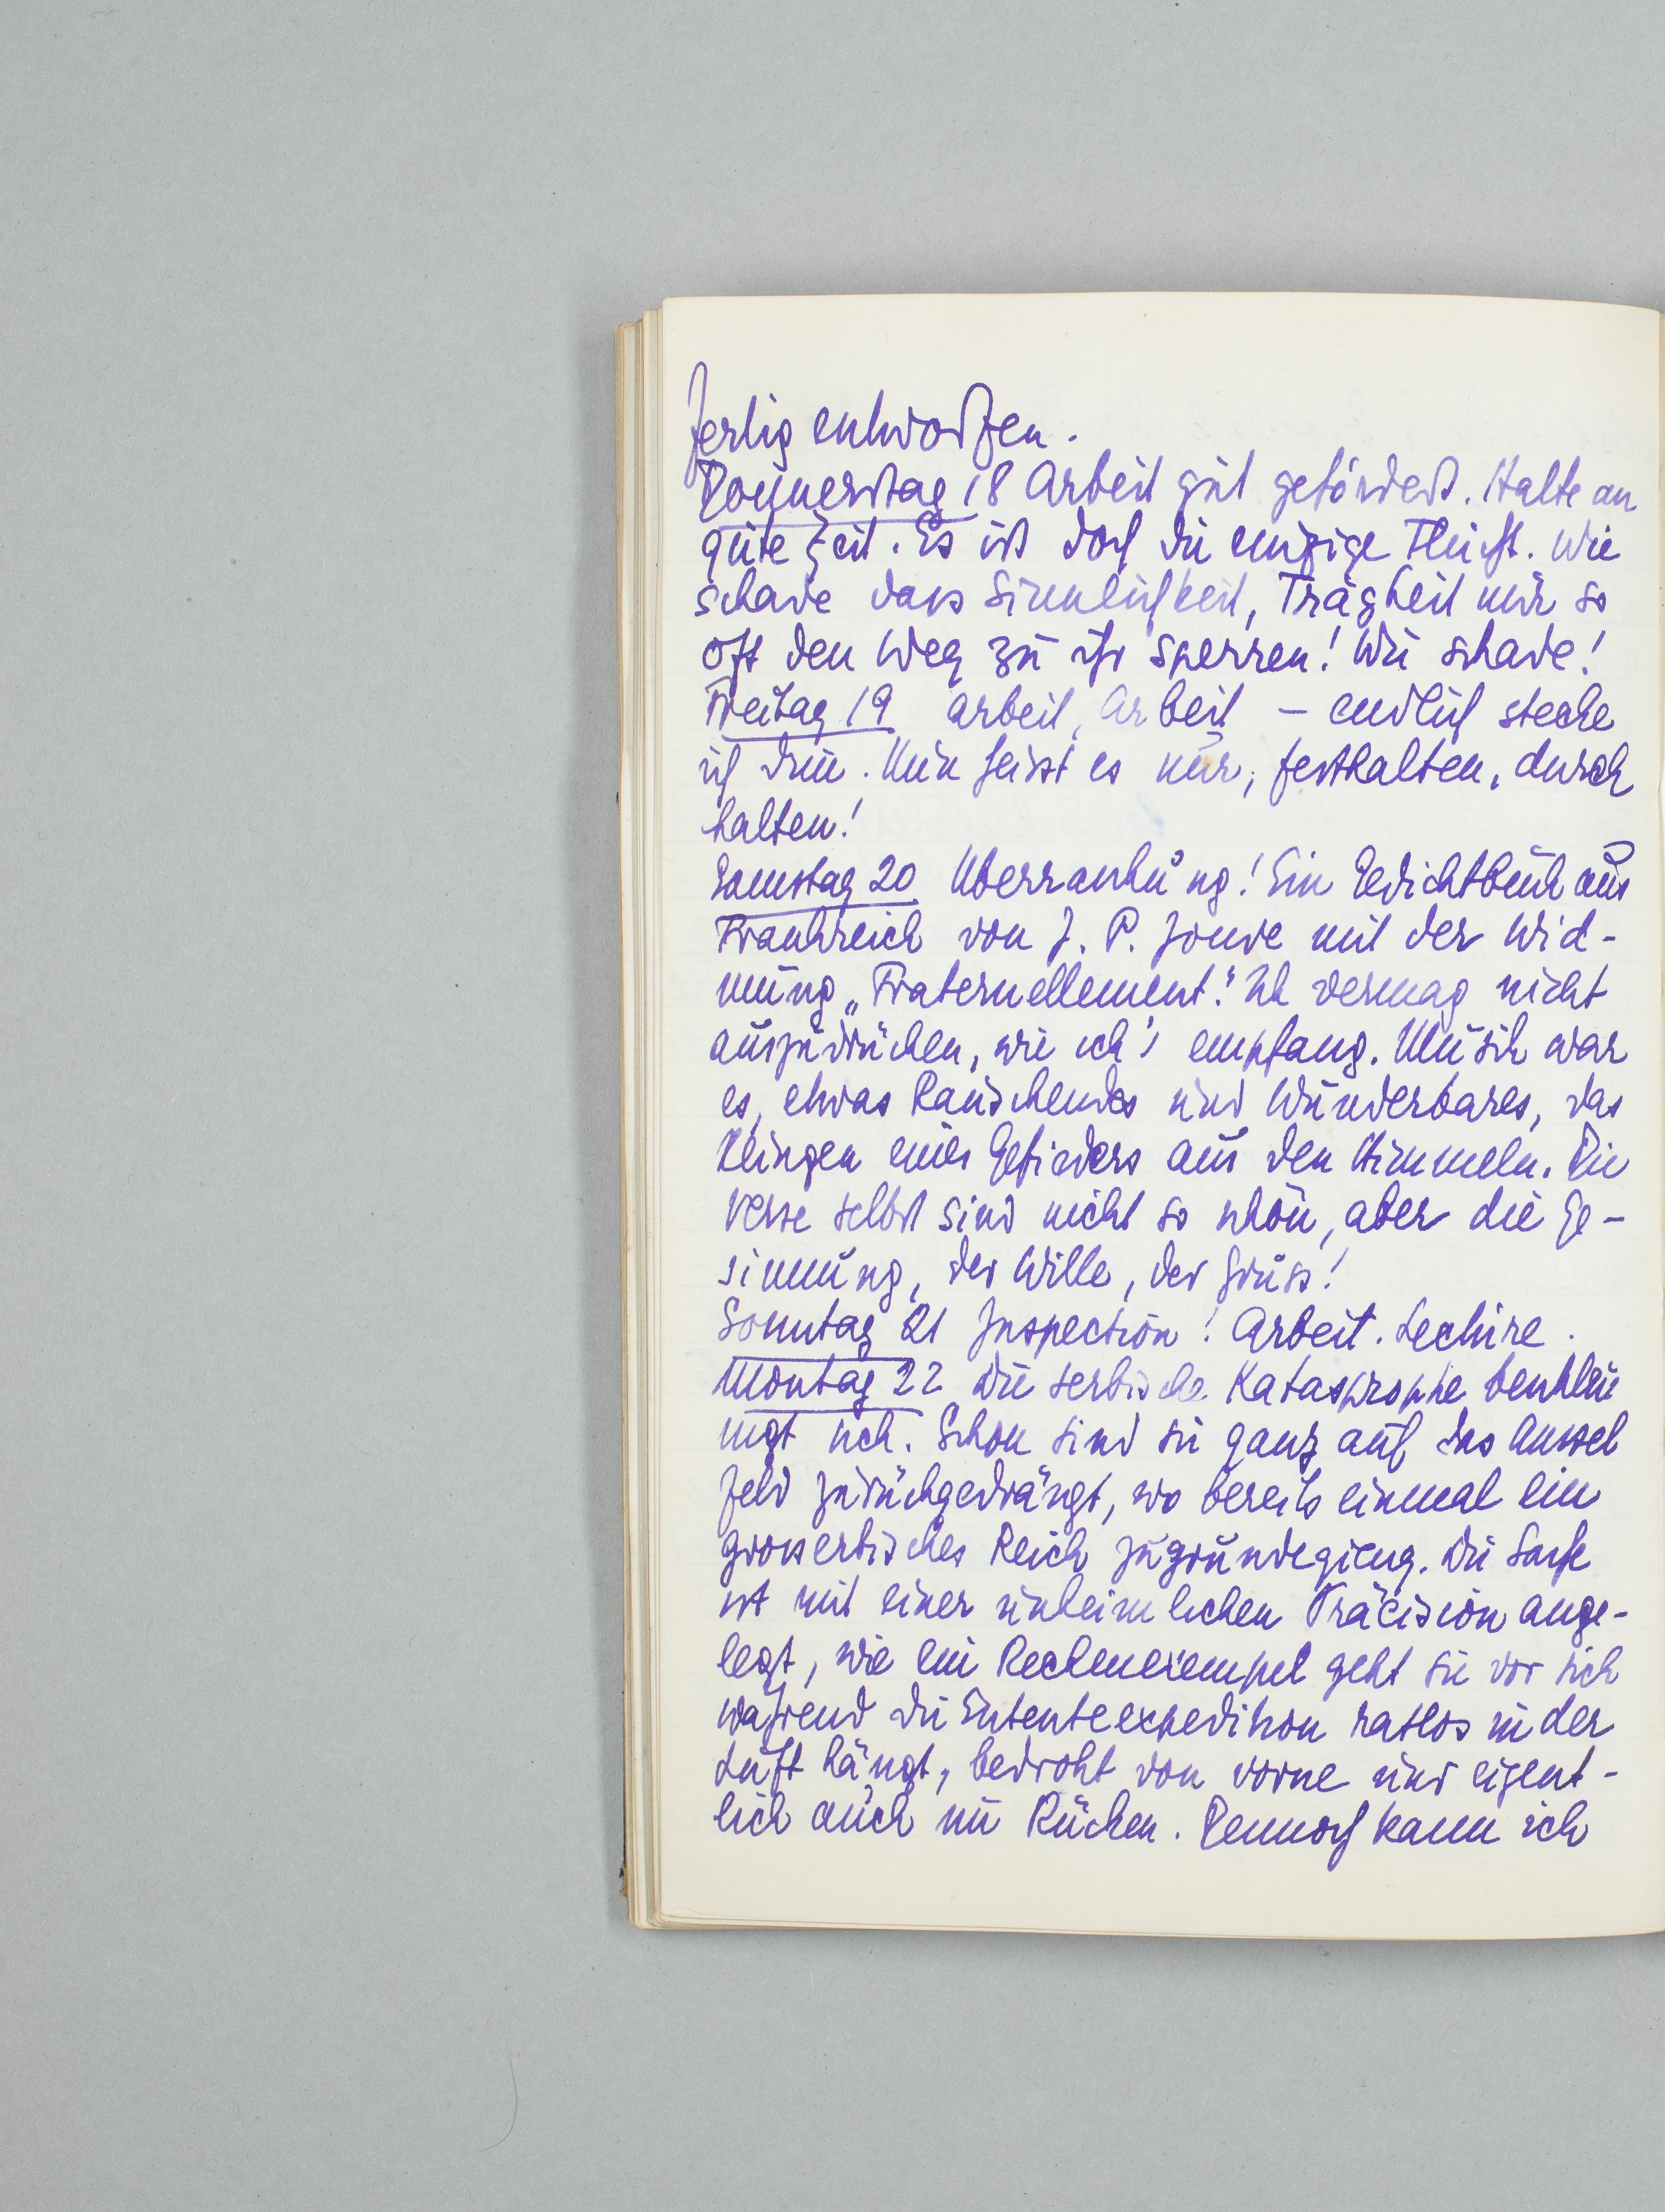 fertig entworfen.
Donnerstag 18 Arbeit gut gefördert. Halte an
gute Zeit. Es ist doch die einzige Flucht. Wie
schade dass Sinnlichkeit, Trägheit mir so
oft den Weg zu ihr sperren! Wie schade!
Freitag 19 Arbeit, Arbeit – endlich stecke
ich drin. Nun heisst es nur, festhalten, durch
halten!
Samstag 20 Überraschung! Ein Gedichtbuch aus
Frankreich von J. P. Jouve mit der Wid-
mung „Fraternellement." Ich vermag nicht
auszudrücken, wie ich's empfang. Musik war
es, etwas Rauschendes und Wunderbares, das
Klingen eines Gefieders aus den Himmeln. Die
Verse selbst sind nicht so schön, aber die Ge-
sinnung, der Wille, der Gruss!
Sonntag 21 Inspection! Arbeit. Lectüre.
Montag 22 Die serbische Katasprophe beschleu
nigt sich. Schon sind sie ganz auf das Amsel
feld zurückgedrängt, wo bereits einmal ein
grosserbisches Reich zugrundegieng. Die Sache
ist mit einer unheimlichen Präcision ange-
legt, wie ein Rechenexempel geht sie vor sich
während die Ententeexpedition ratlos in der
Luft hängt, bedroht von vorne und eigent-
lich auch im Rücken. Dennoch kann ich